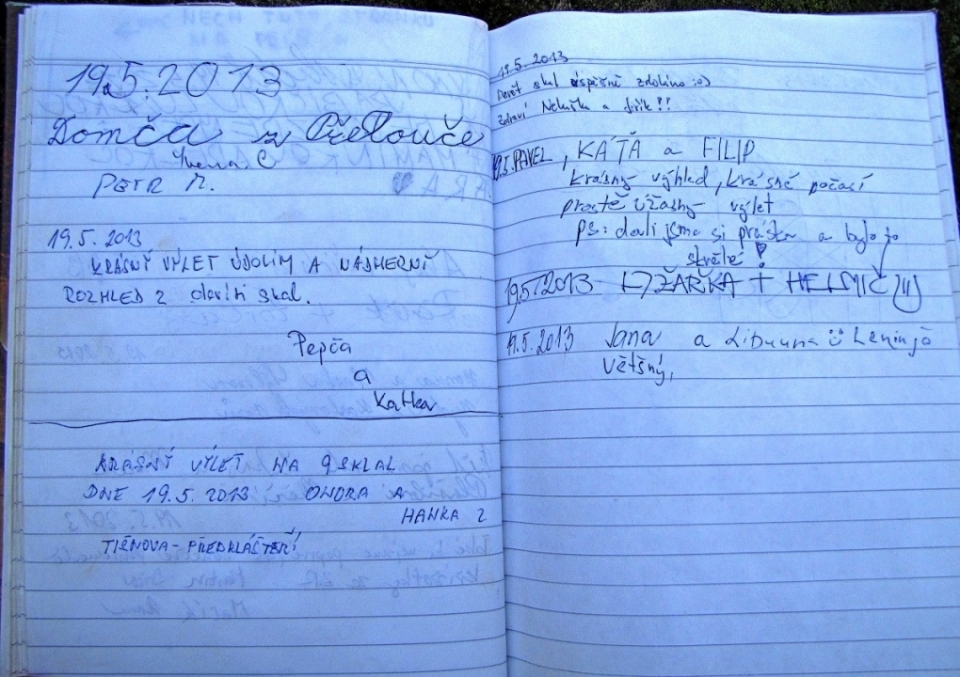 19.5.2013
Domča z Přelouče
Ivena C
PETR M.
19.5.2013
KRÁSNÝ VÝLET ÚDOLÍM A NÁDHERNÝ
ROZHLED Z devíti skal.
Pepča
a
Katka
KRÁSNÝ VÝLET NA 9 SKAL
DNE 19.5.2013 ONDRA A
HANKA Z
TIŠNOVA-PŘEDKLÁŠTEŘÍ
19.5.2013
Devět skal úspěšně zdoláno :o)
Zdraví a Jiřík!!
19.5. PAVEL, KÁŤA a FILIP
krásný výhled, krásné počasí
prostě úžasný výlet
ps: dali jsme si a bylo to
skvělé!
19.5.2013 + HELMIČ
19.5.2013 Jana a Libuuna